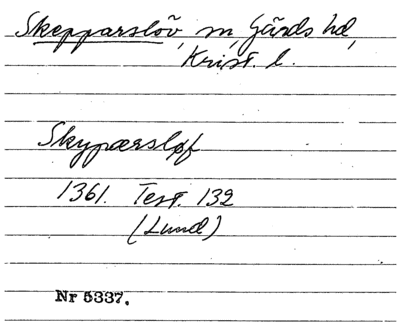 Skepparslöv, sn, Gärds hd,
Krist. l.
Skypærsløf
1361. Test. 132
(Lund)
Nr 5337.